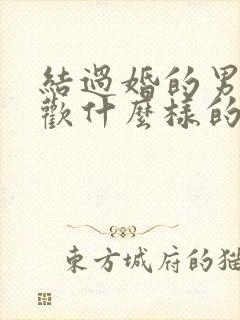 結過婚的男
歡什麼樣的
東方城府的